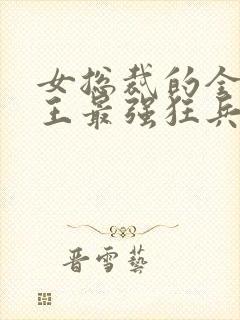 女总裁的全
王最强狂兵
晋雪艺